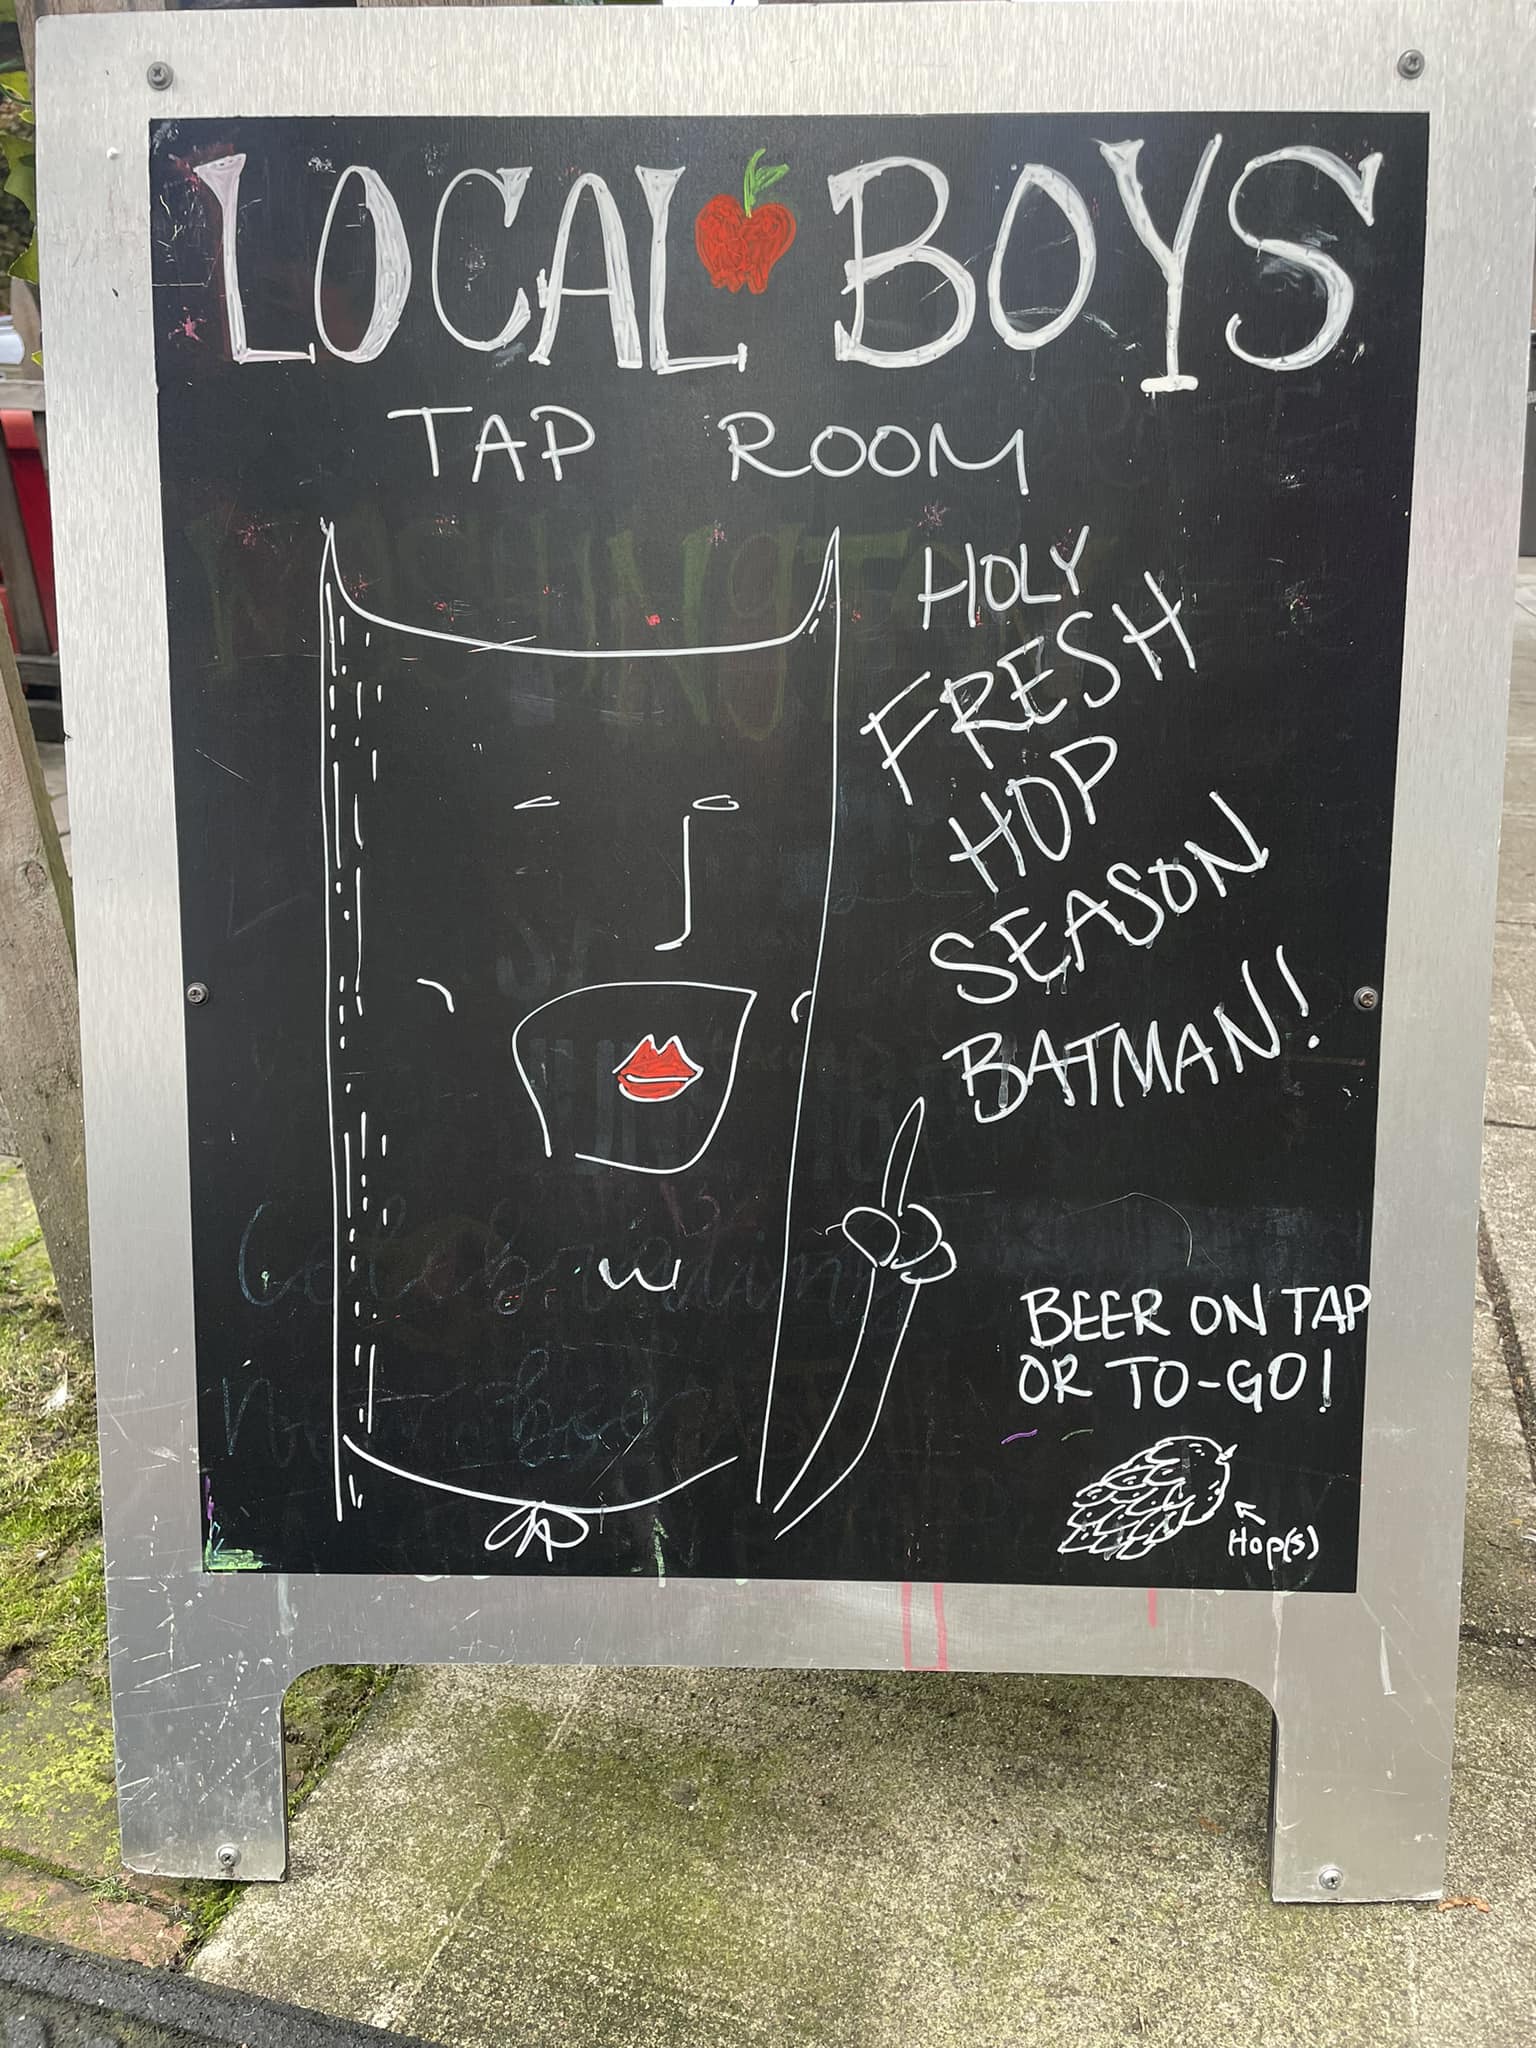 LOCAL BOYS
TAP ROOM
HOLY
FRESH
HOP
SEASON
BATMAN!
BEER ON TAP
OR TO-GO!
Hop(s)